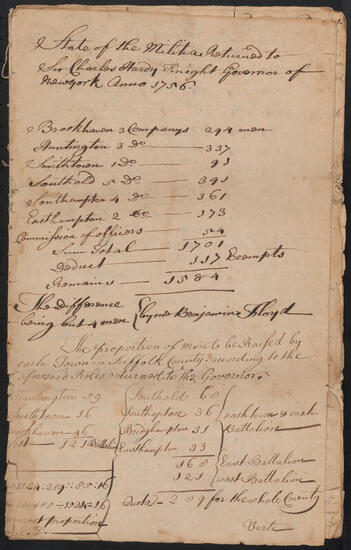 State of the Militia Returned to
Sir Charles Hardy Knight Governor of
Newyork Anno 1756.
Brookhaven 3 Companys 294 men
Huntington 3 do — 337
Smithtown 1 do — 91
Southold 5 do — 391
Southampton 4 do — 361
Easthampton 2 do — 173
Commission of officers — 54
Sum Total — 1701
Deduct — 117 Exempts
Remains — 1584
The Difference
being but 4 men
by me Benjamin Floyd
The proportion of men to be Raised by
each Town in Suffolk County according to the
Roles returned to the Governor
Huntington 59
Smithtown 16
Brookhaven 46
121 Battalion
Southold 68
Southampton 36
Bridghampton 31
Easthampton 33
each town & each
Battalion
168 East Battalion
121 West Battalion
Quota — 289 for the whole County
1524:289::85:16
proportion
Vert